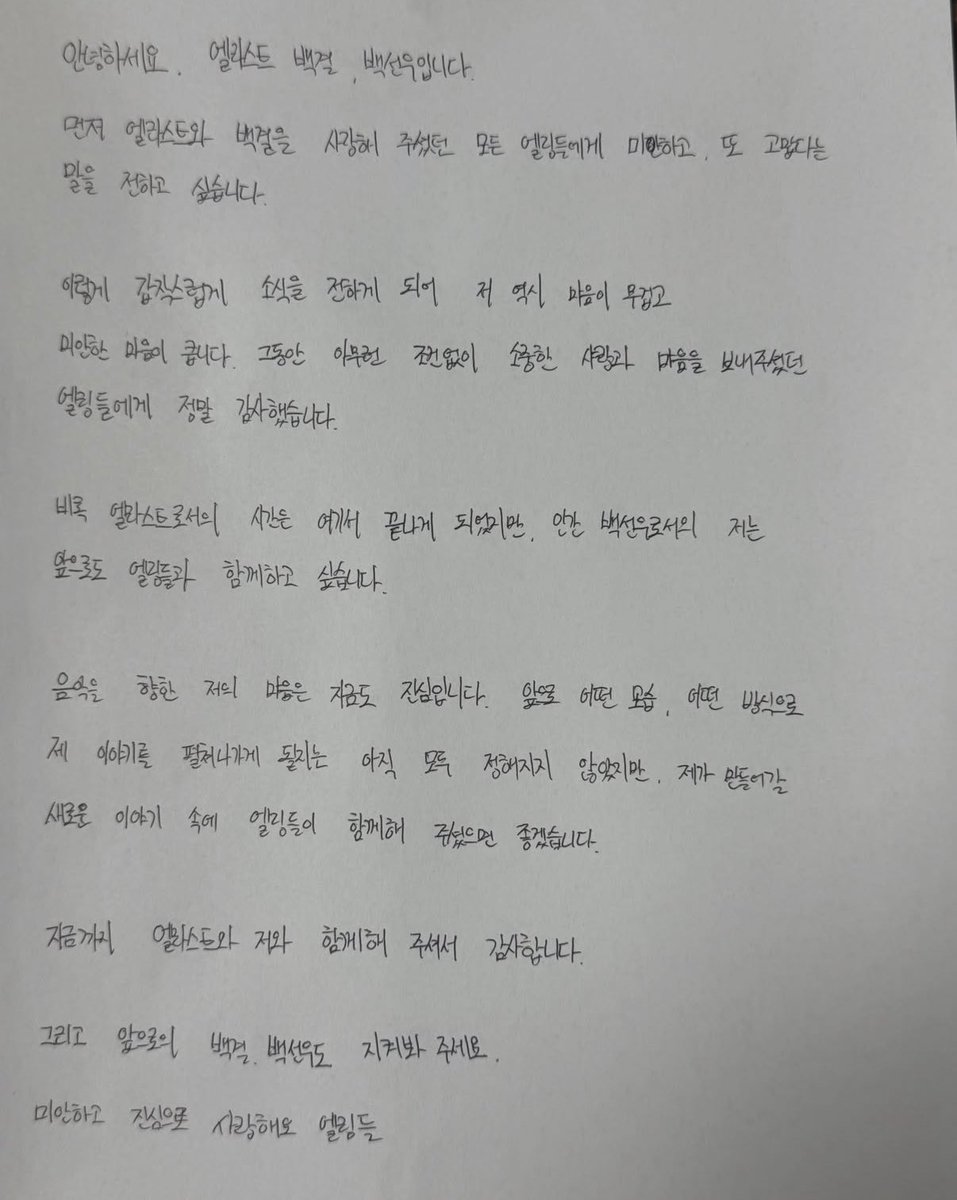 안녕하세요. 엘라스트 백결, 백선우입니다.
먼저 엘라스트와 백결을 사랑해 주셨던 모든 엘링들에게 미안하고, 또 고맙다는
말을 전하고 싶습니다.
이렇게 갑작스럽게 소식을 전하게 되어 저 역시 마음이 무겁고
미안한 마음이 큽니다. 그동안 아무런 조건없이 소중한 사랑과 마음을 보내주셨던
엘링들에게 정말 감사했습니다.
비록 엘라스트로서의 시간은 여기서 끝나게 되었지만, 인간 백선우로서의 저는
앞으로도 엘링들과 함께하고 싶습니다.
음악을 향한 저의 마음은 지금도 진심입니다. 앞으로 어떤 모습, 어떤 방식으로
제 이야기를 펼쳐나가게 될지는 아직 모두 정해지지 않았지만, 제가 만들어갈
새로운 이야기 속에 엘링들이 함께해 주셨으면 좋겠습니다.
지금까지 엘라스트와 저와 함께해 주셔서 감사합니다.
그리고 앞으로의 백결, 백선우도 지켜봐 주세요.
미안하고 진심으로 사랑해요 엘링들